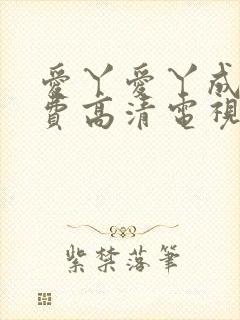 愛丫愛丫成
費高清電視
紫禁落筆